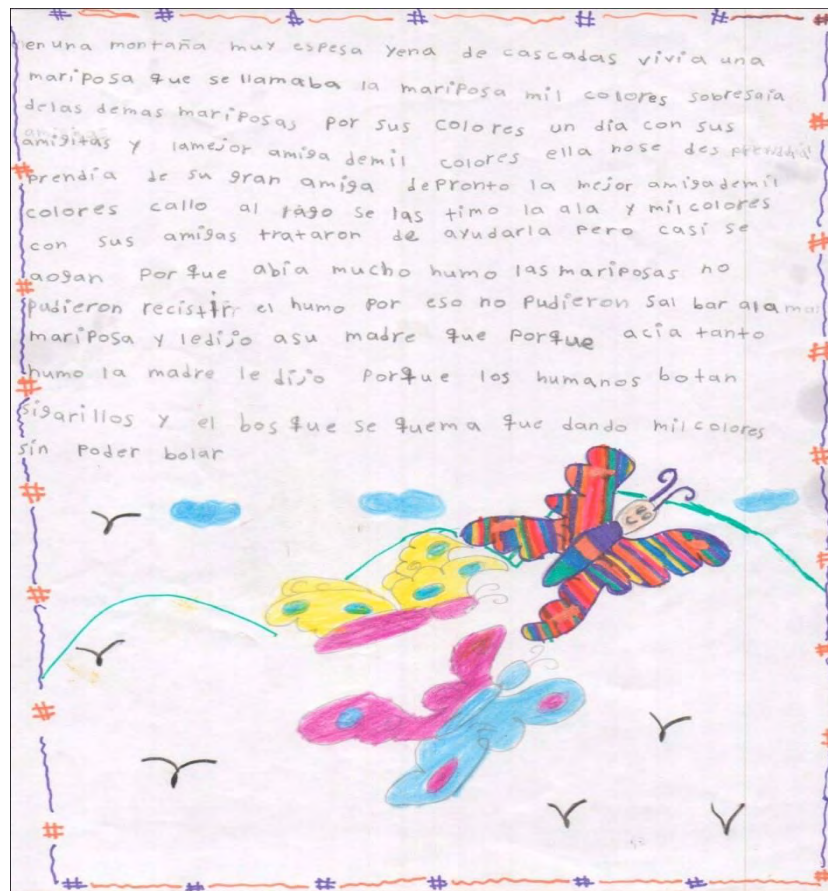 en una montaña muy espesa yena de cascadas vivia una
mariposa que se llamaba la mariposa mil colores sobresaía
delas demas mariposas por sus colores un día con sus
amigitas y lamejor amiga demil colores ella nose des prendía
prendía de su gran amiga depronto la mejor amigademil
colores callo al lago se las timo la ala y milcolores
con sus amigas trataron de ayudarla pero casi se
aogan por que abía mucho humo las mariposas no
pudieron recistir el humo por eso no pudieron sal bar ala ma
mariposa y ledijo asu madre que porque acia tanto
humo la madre le dijo porque los humanos botan
sigarillos y el bos que se quema que dando milcolores
sin poder bolar